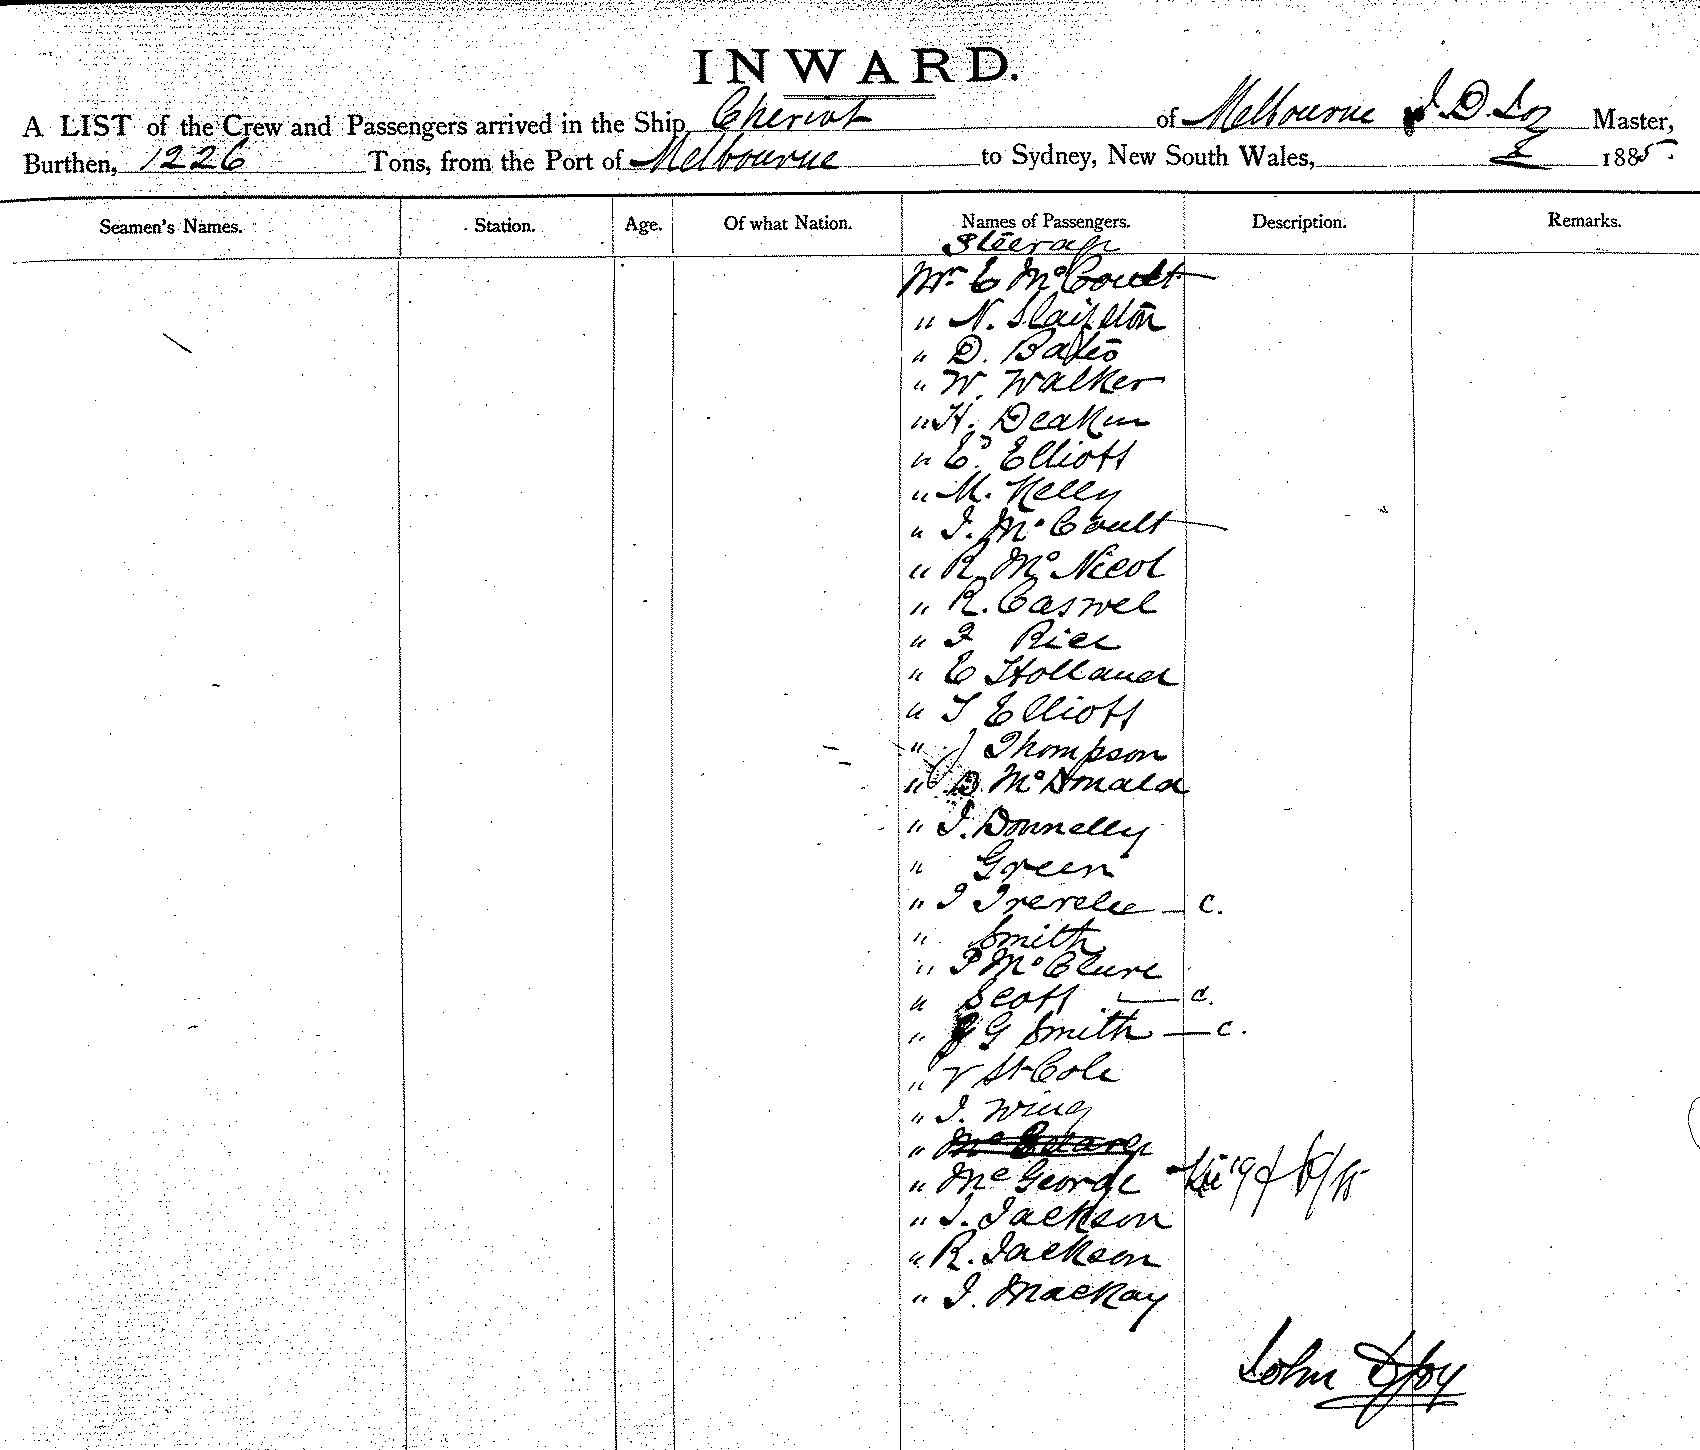 INWARD.
A LIST of the Crew and Passengers arrived in the Ship, Cheviot of Melbourne J. D. Joy Master,
Burthen, 1226 Tons, from the Port of Melbourne to Sydney, New South Wales, 1885.
Seamen's Names. Station. Age. Of what Nation. Names of Passengers. Description. Remarks.
Steerage
Mr. E McCoult
" N.
" D. Bates
" W. Walker
" H. Deakin
" Ed. Elliott
" M. Kelly
" J. McCoult
" R McNicol
" R. Caswel
" J Rice
" E Holland
" T Elliott
" J Thompson
" D. McDonald
" J. Donnelly
" Green
" J — C.
" Smith
" P McClure
" Scott — C.
" G Smith — C.
" V St Cole
" J. Wing
"
" Mc George
" J. Jackson
" R. Jackson
" J. MacKay
John D Joy